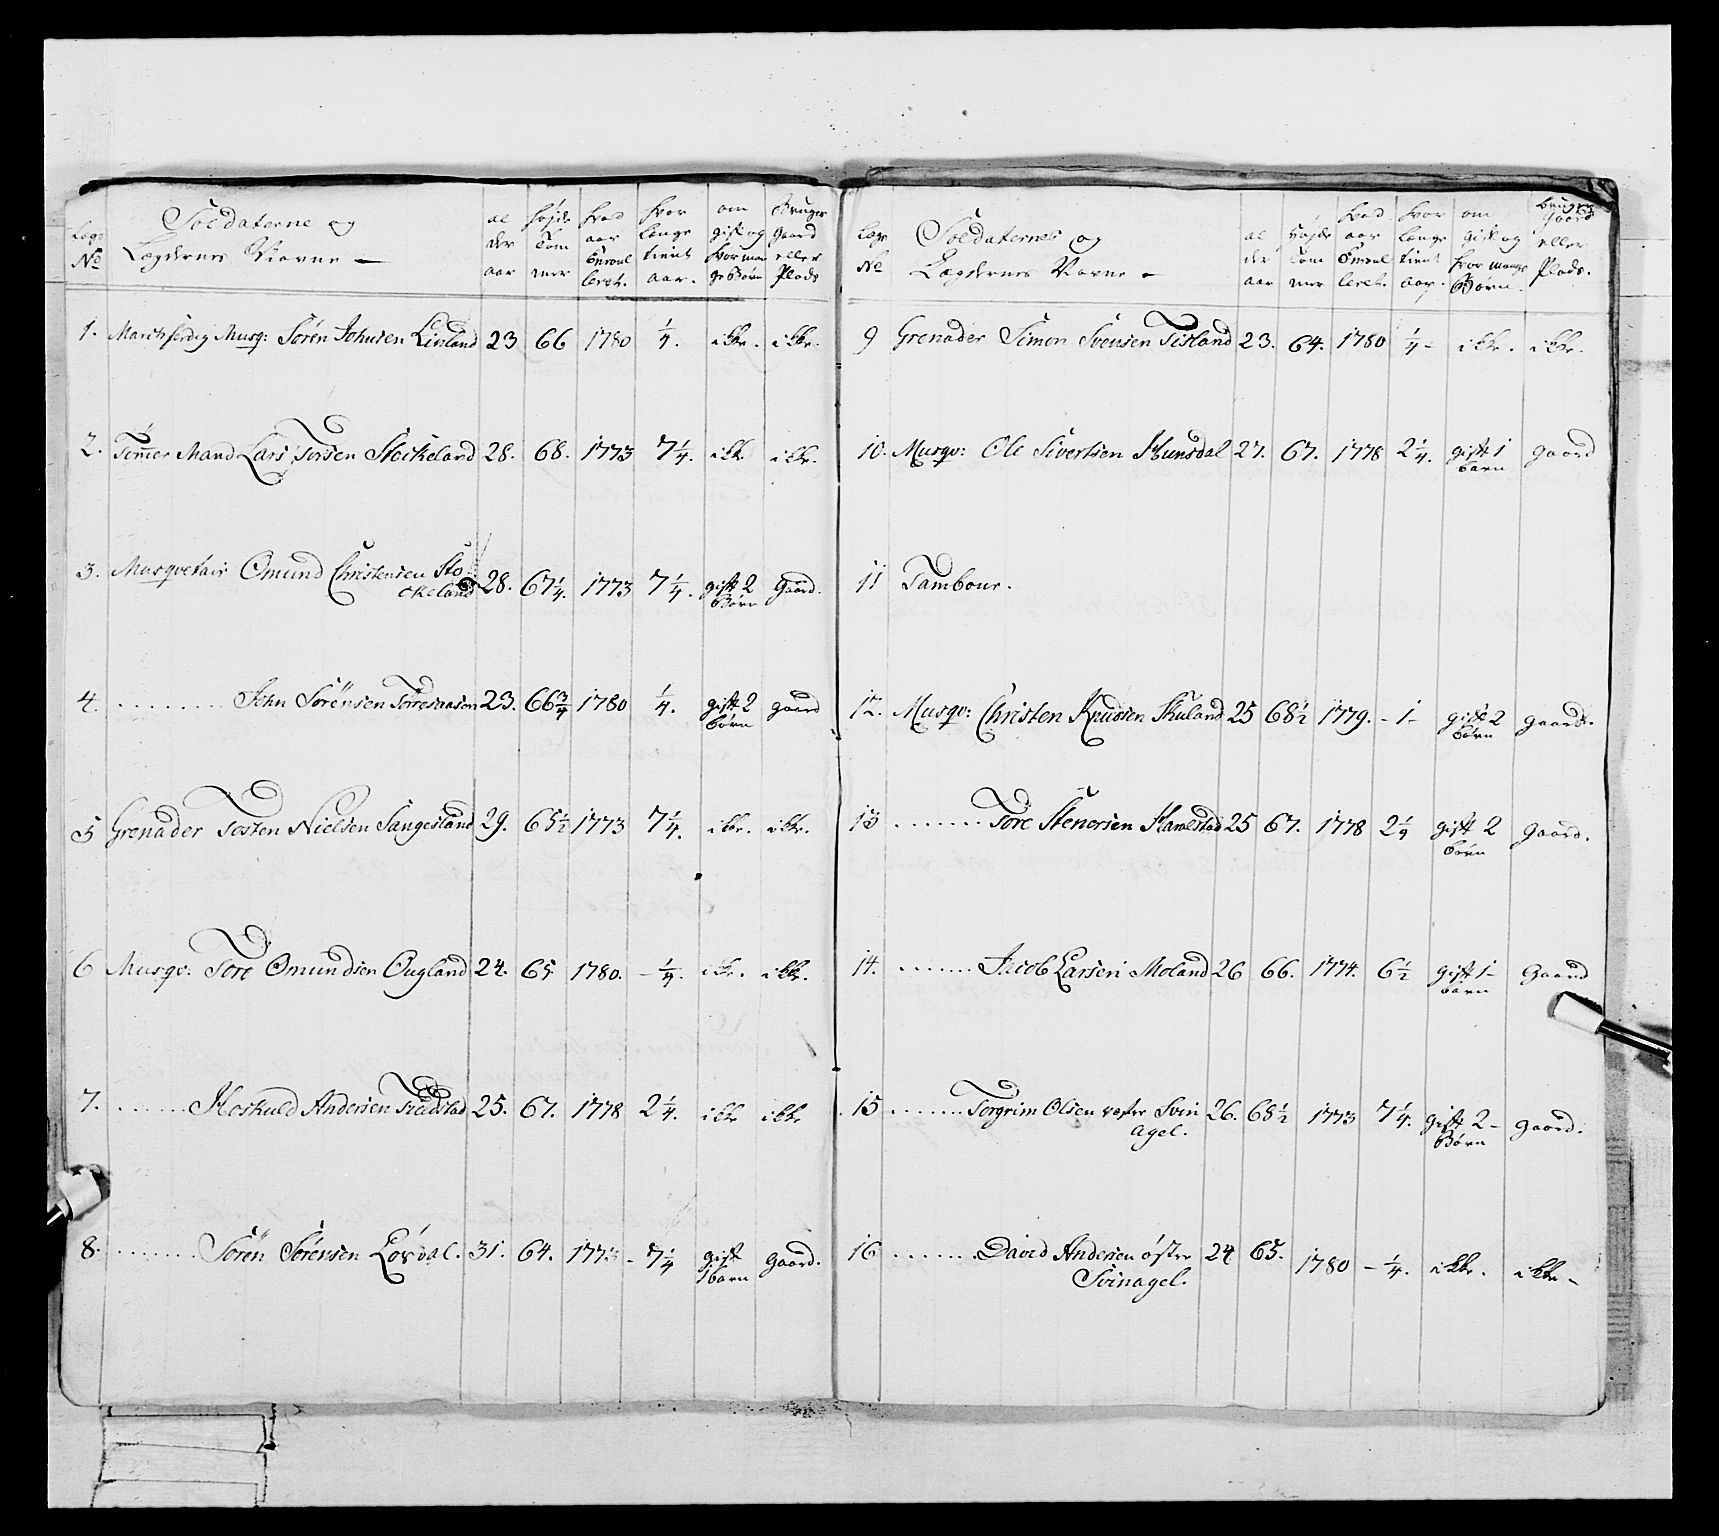 Lægs No | Soldaterne og Lægdernes Navne — | al der aar | Højde Tom mer | hvad aar Enroul leret. | hvor længe tient aar. | om gift og hvor man ge Børn | Bruger Gaard eller Plads
1. Marchferdig Musq: Sørøn Johnsen Linland 23 66 1780 1/4. ikke. ikke.
2. Tømmer Mand Lars Torsen Stockeland 28. 68. 1773 7 1/4. ikke ikke.
3. Musquetair Omund Christensen Sto
ckeland 28. 67 1/4. 1773 7 1/4. gift 2 Børn Gaard.
4. ........ John Sørensen Torresaasen 23. 66 3/4 1780 1/4. gift 2 børn gaard
5 Grenader Tosten Nielsen Sangesland 29. 65 1/2 1773 7 1/4. ikke. ikke.
6 Musqv: Tore Omundsen Øugland 24. 65 1780. - 1/4. ikke. ikke.
7. ........ Hoskuld Andersen 25. 67. 1778 2 1/4. ikke ikke
8. ........ Sørøn Sørensen Løvdal. 31. 64. 1773 - 7 1/4 gift 1 barn gaard.
Lægs No | Soldaternes og Lægdernes Navne - | al der aar | Højde Tom mer | hvad aar Enroul leret. | hvor længe tient aar. | om gift og hvor mange Børn. | bruger Gaard eller Plads.
9 Grenader Simon Svensen Tisland 23. 64. 1780 1/4 - ikke. ikke.
10. Musqv: Ole Sivertsen Hunsdal 27. 67. 1778 2 1/4. gift 1 barn gaard
11 Tambour.
12. Musqv: Christen Knudsen Skuland 25 68 1/2 1779. - 1 - gift 2 børn gaard.
13 ........ Tore Stenersen 25 67. 1778 2 1/4 gift 2 børn gaard.
14. ........ Jacob Larsen Moland 26 66. 1774. 6 1/2 gift 1 - barn Gaard
15 ........ Torgrim Olsen vester Svin
agel. 26. 68 1/2 1773 7 1/4. gift 2 - Børn gaard.
16 ........ David Andersen øster
Svinagel. 24 65. 1780 - 1/4. ikke. ikke -